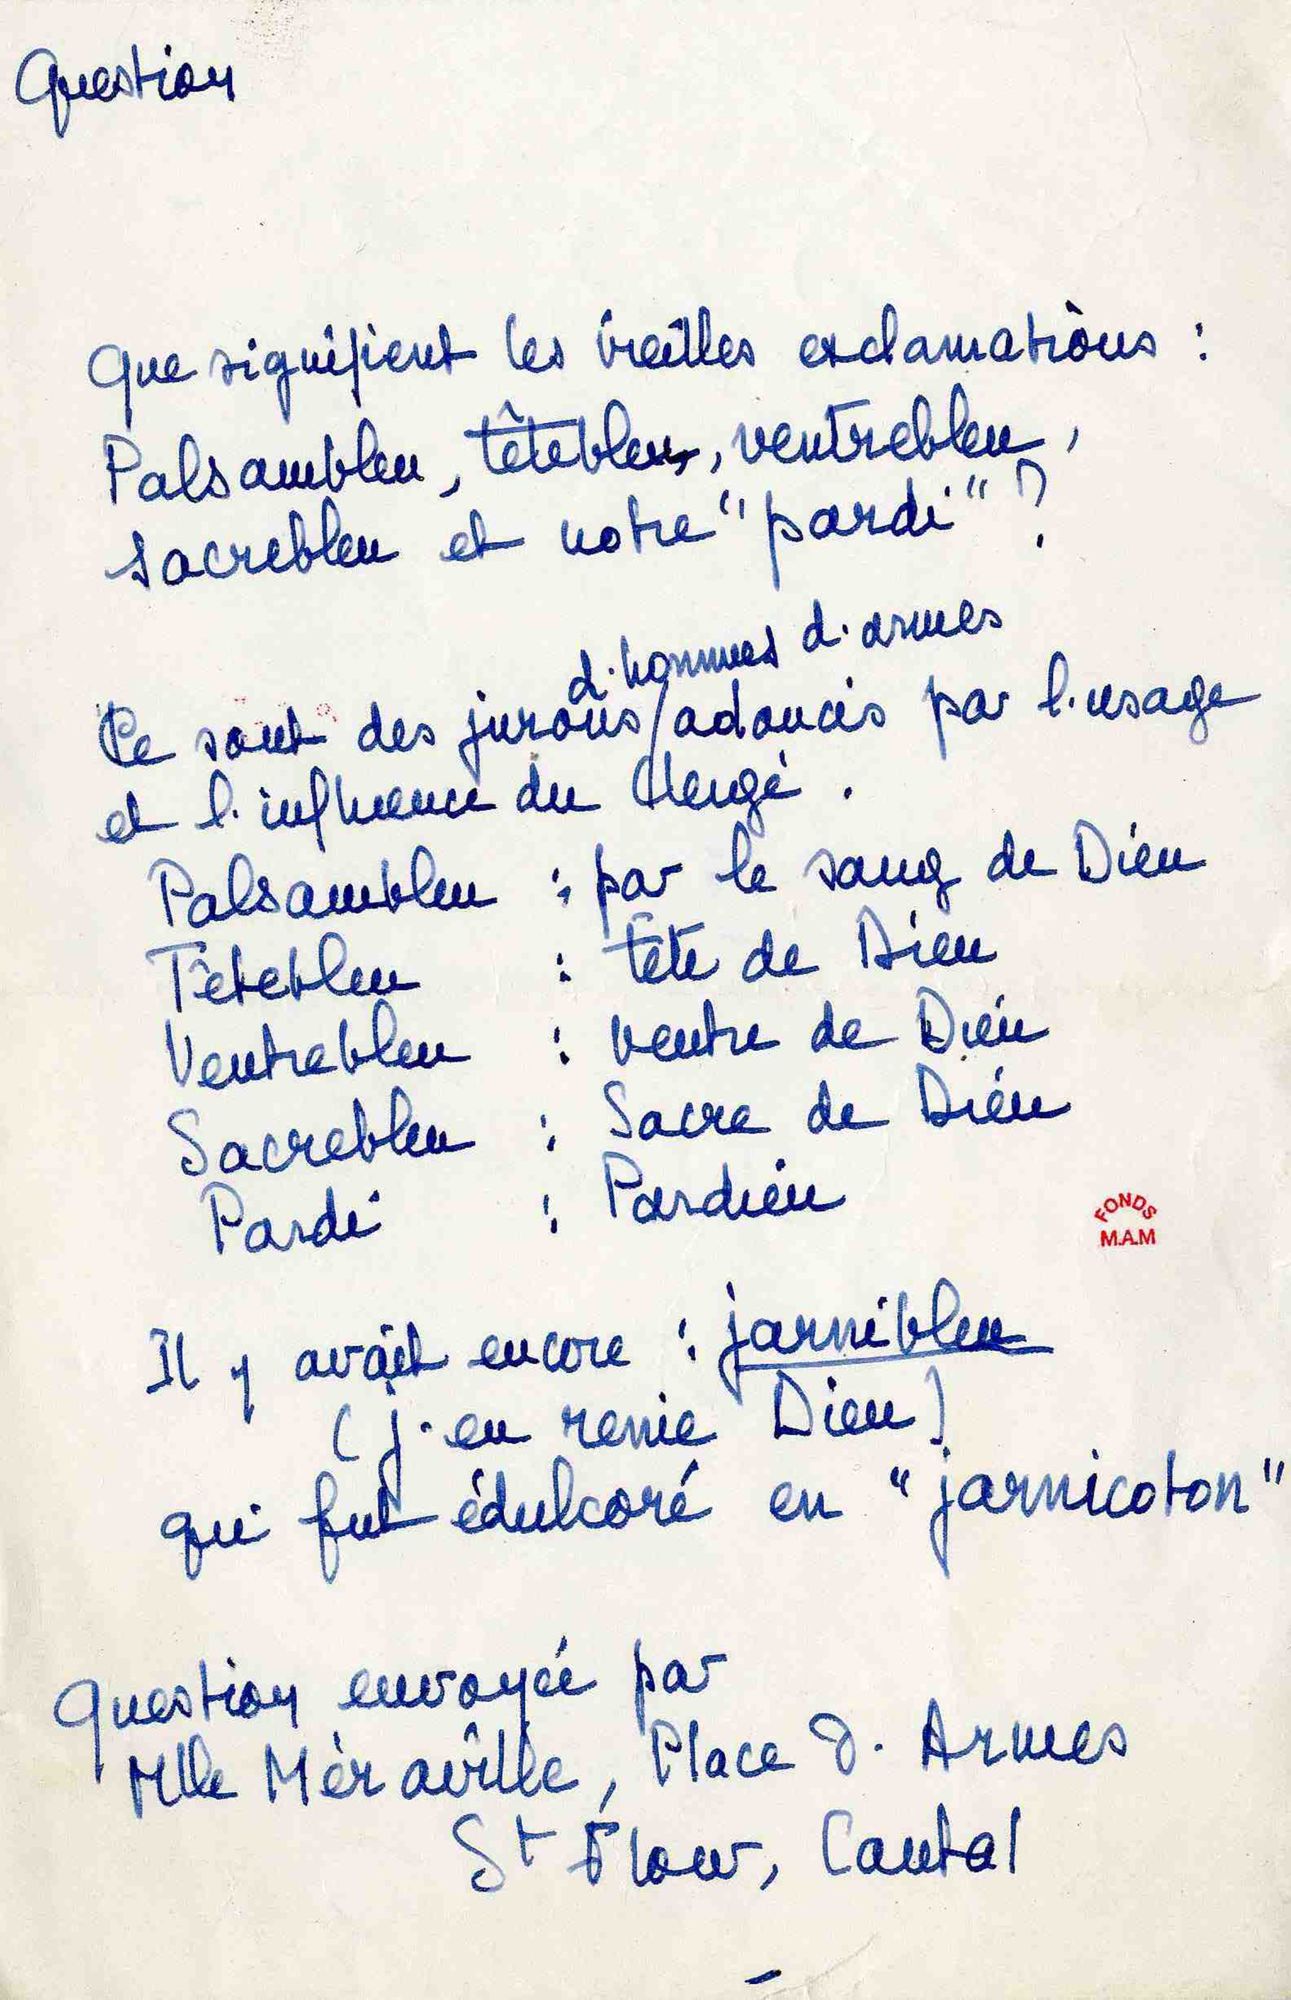 Question
Que signifient les vieilles exclamations :
Palsambleu, têtebleu, ventrebleu,
sacrebleu et notre "pardi" ?
d'hommes d'armes
Ce sont des jurons / adoucis par l'usage
et l'influence du Clergé.
Palsambleu : par le sang de Dieu
Têtebleu : tête de Dieu
Ventrebleu : ventre de Dieu
Sacrebleu : Sacre de Dieu
Pardi : Pardieu
FONDS
M.A.M
Il y avait encore : jarnibleu
(j'en renie Dieu)
qui fut édulcoré en "jarnicoton"
Question envoyée par
Mlle Méraville, Place d'Armes
St Flour, Cantal